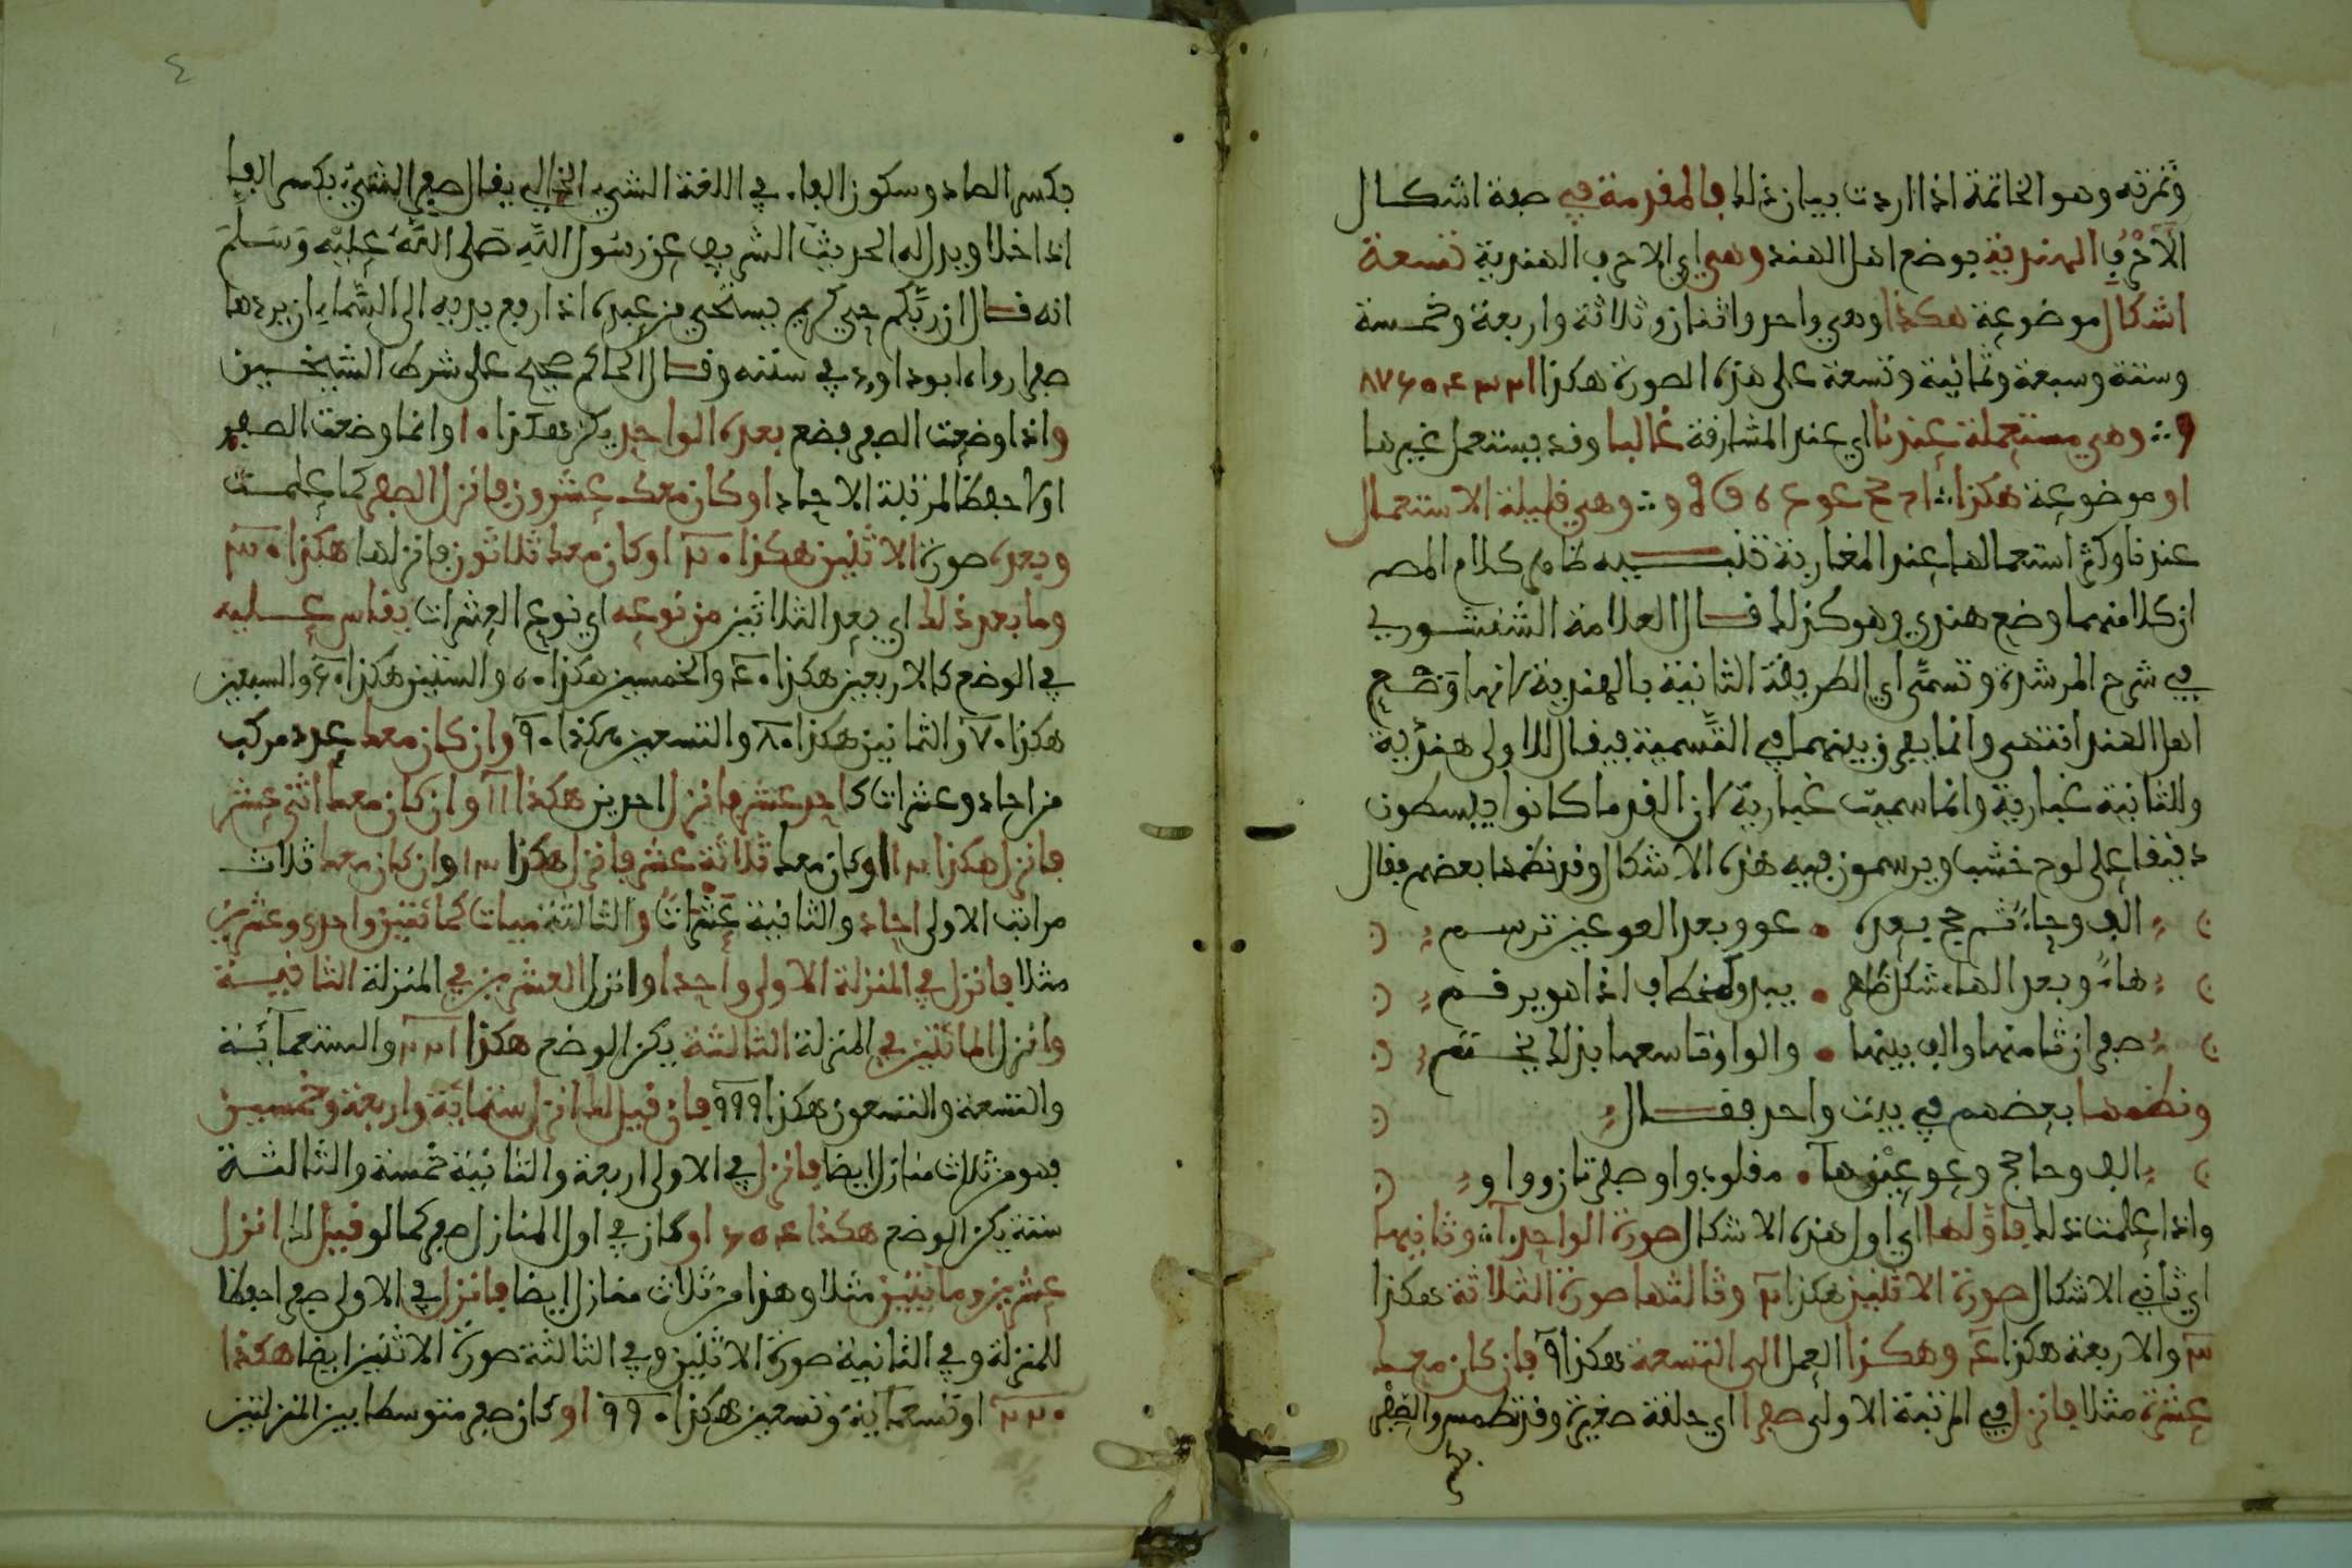 وثمرته وهو الخاتمة اذا اردت بيان ذلك فالمقدمة في صفة اشكال
الاحرف الهندية بوضع اهل الهند وهي اي الاحرف الهندية تسعة
اشكال موضوعة هكذا وهي واحد واثنان وثلاثة واربعة وخمسة
وستة وسبعة وثمانية وتسعة على هذه الصورة هكذا ١ ٢ ٣ ٤ ٥ ٦ ٧ ٨
٩ وهي مستعملة عندنا اي عند المشارقة غالبا وقد يستعمل غيرها
او موضوعة هكذا وهي قليلة الاستعمال
عندنا وكثر استعمالها عند المغاربة تنبيه ظاهر كلام المص
ان كلا منهما وضع هندي وهو كذلك قال العلامة الشنشوري
في شرح المرشدة وتسمى اي الطريقة الثانية بالهندية لانها وضع
اهل الهند انتهى وانما يفرق بينهما في التسمية فيقال للاولى هندية
والثانية غبارية وانما سميت غبارية لان القدما كانوا يبسطون
دقيقا على لوح خشب ويرسمون فيه هذه الاشكال وقد نظمها بعضهم فقال
الف وحاء ثم حج بعده • عو وبعد العو عين ترسم
هاء وبعد الهاء شكل ظاهر • يبدو كخطاف اذا هو يرقم
صفران ثامنها والف بينها • والواو تاسعها بذلك تختتم
ونظمها بعضهم في بيت واحد فقال
الف وحا حج وعو عين ها • مقلوب واو صفرتان وواو
واذا علمت ذلك فاولها اي اول هذه الاشكال صورة الواحد ١ وثانيها
اي ثاني الاشكال صورة الاثنين هكذا ٢ وثالثها صورة الثلاثة هكذا
٣ والاربعة هكذا ٤ وهكذا العمل الى التسعة هكذا ٩ فان كان معك
عشرة مثلا فانزل في المرتبة الاولى صفرا اي حلقة صغيرة وقد تطمس والصفر
بكسر
٤
بكسر الصاد وسكون الفاء في اللغة الشيء الخالي يقال صفر الشيء بكسر الفا
اذا خلا ويدل له الحديث الشريف عن رسول الله صلى الله عليه وسلم
انه قال ان ربكم حيي كريم يستحيي من عبده اذا رفع يديه الى السماء ان يردها
صفرا رواه ابو داود في سننه وقال الحاكم صحيح على شرط الشيخين
واذا وضعت الصفر فضع بعده الواحد يكن هكذا ١٠ وانما وضعت الصفر
اولا حفظا لمرتبة الاحاد او كان معك عشرون فانزل الصفر كما علمت
وبعده صورة الاثنين هكذا ٢٠ او كان معك ثلاثون فانزلها هكذا ٣٠
وما بعد ذلك اي بعد الثلاثين من نوعه اي نوع العشرات يقاس عليه
في الوضع كالاربعين هكذا ٤٠ والخمسين هكذا ٥٠ والستين هكذا ٦٠ والسبعين
هكذا ٧٠ والثمانين هكذا ٨٠ والتسعين هكذا ٩٠ وان كان معك عدد مركب
من احاد وعشرات كاحد عشر فانزل احدين هكذا ١١ وان كان معك اثنى عشر
فانزل هكذا ١٢ او كان معك ثلاثة عشر فانزل هكذا ١٣ وان كان معك ثلاث
مراتب الاولى احاد والثانية عشرات والثالثة ميات كمائتين واحدى وعشرين
مثلا فانزل في المنزلة الاولى واحدا وانزل العشرين في المنزلة الثانية
وانزل المائتين في المنزلة الثالثة يكن الوضع هكذا ٢٢١ والتسعمائة
والتسعة والتسعون هكذا ٩٩٩ فان قيل لك انزل ستمائة واربعة وخمسين
فهو من ثلاث منازل ايضا فانزل في الاولى اربعة والثانية خمسة والثالثة
ستة يكن الوضع هكذا ٦٥٤ او كان في اول المنازل صفر كما لو قيل لك انزل
عشرين ومايتين مثلا وهذا من ثلاث منازل ايضا فانزل في الاولى صفرا حفظا
للمنزلة وفي الثانية صورة الاثنين وفي الثالثة صورة الاثنين ايضا هكذا
٢٢٠ او تسعماية وتسعين هكذا ٩٩٠ او كان صفر متوسطا بين المنزلتين